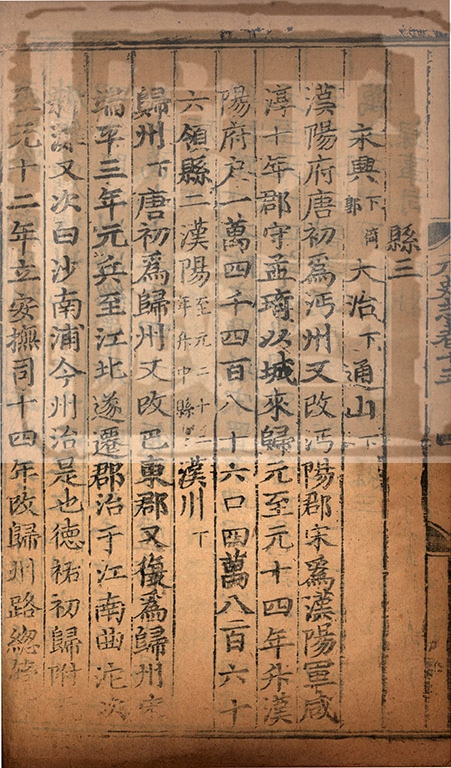 縣三
永興下倚郭大冶下通山下
漢陽府唐初爲沔州又改沔陽郡宋爲漢陽軍咸
淳十年郡守孟琦以城來歸元至元十四年升漢
陽府戶一萬四千四百八十六口四萬八百六十
六領縣二漢陽至元二十二年升中縣漢川下
歸州下唐初爲歸州又改巴東郡又復爲歸州宋
端平三年元兵至江北遂遷郡治于江南曲沱次
新灘又次白沙南浦今州治是也德祐初歸附
至元十二年立安撫司十四年改歸州路總管